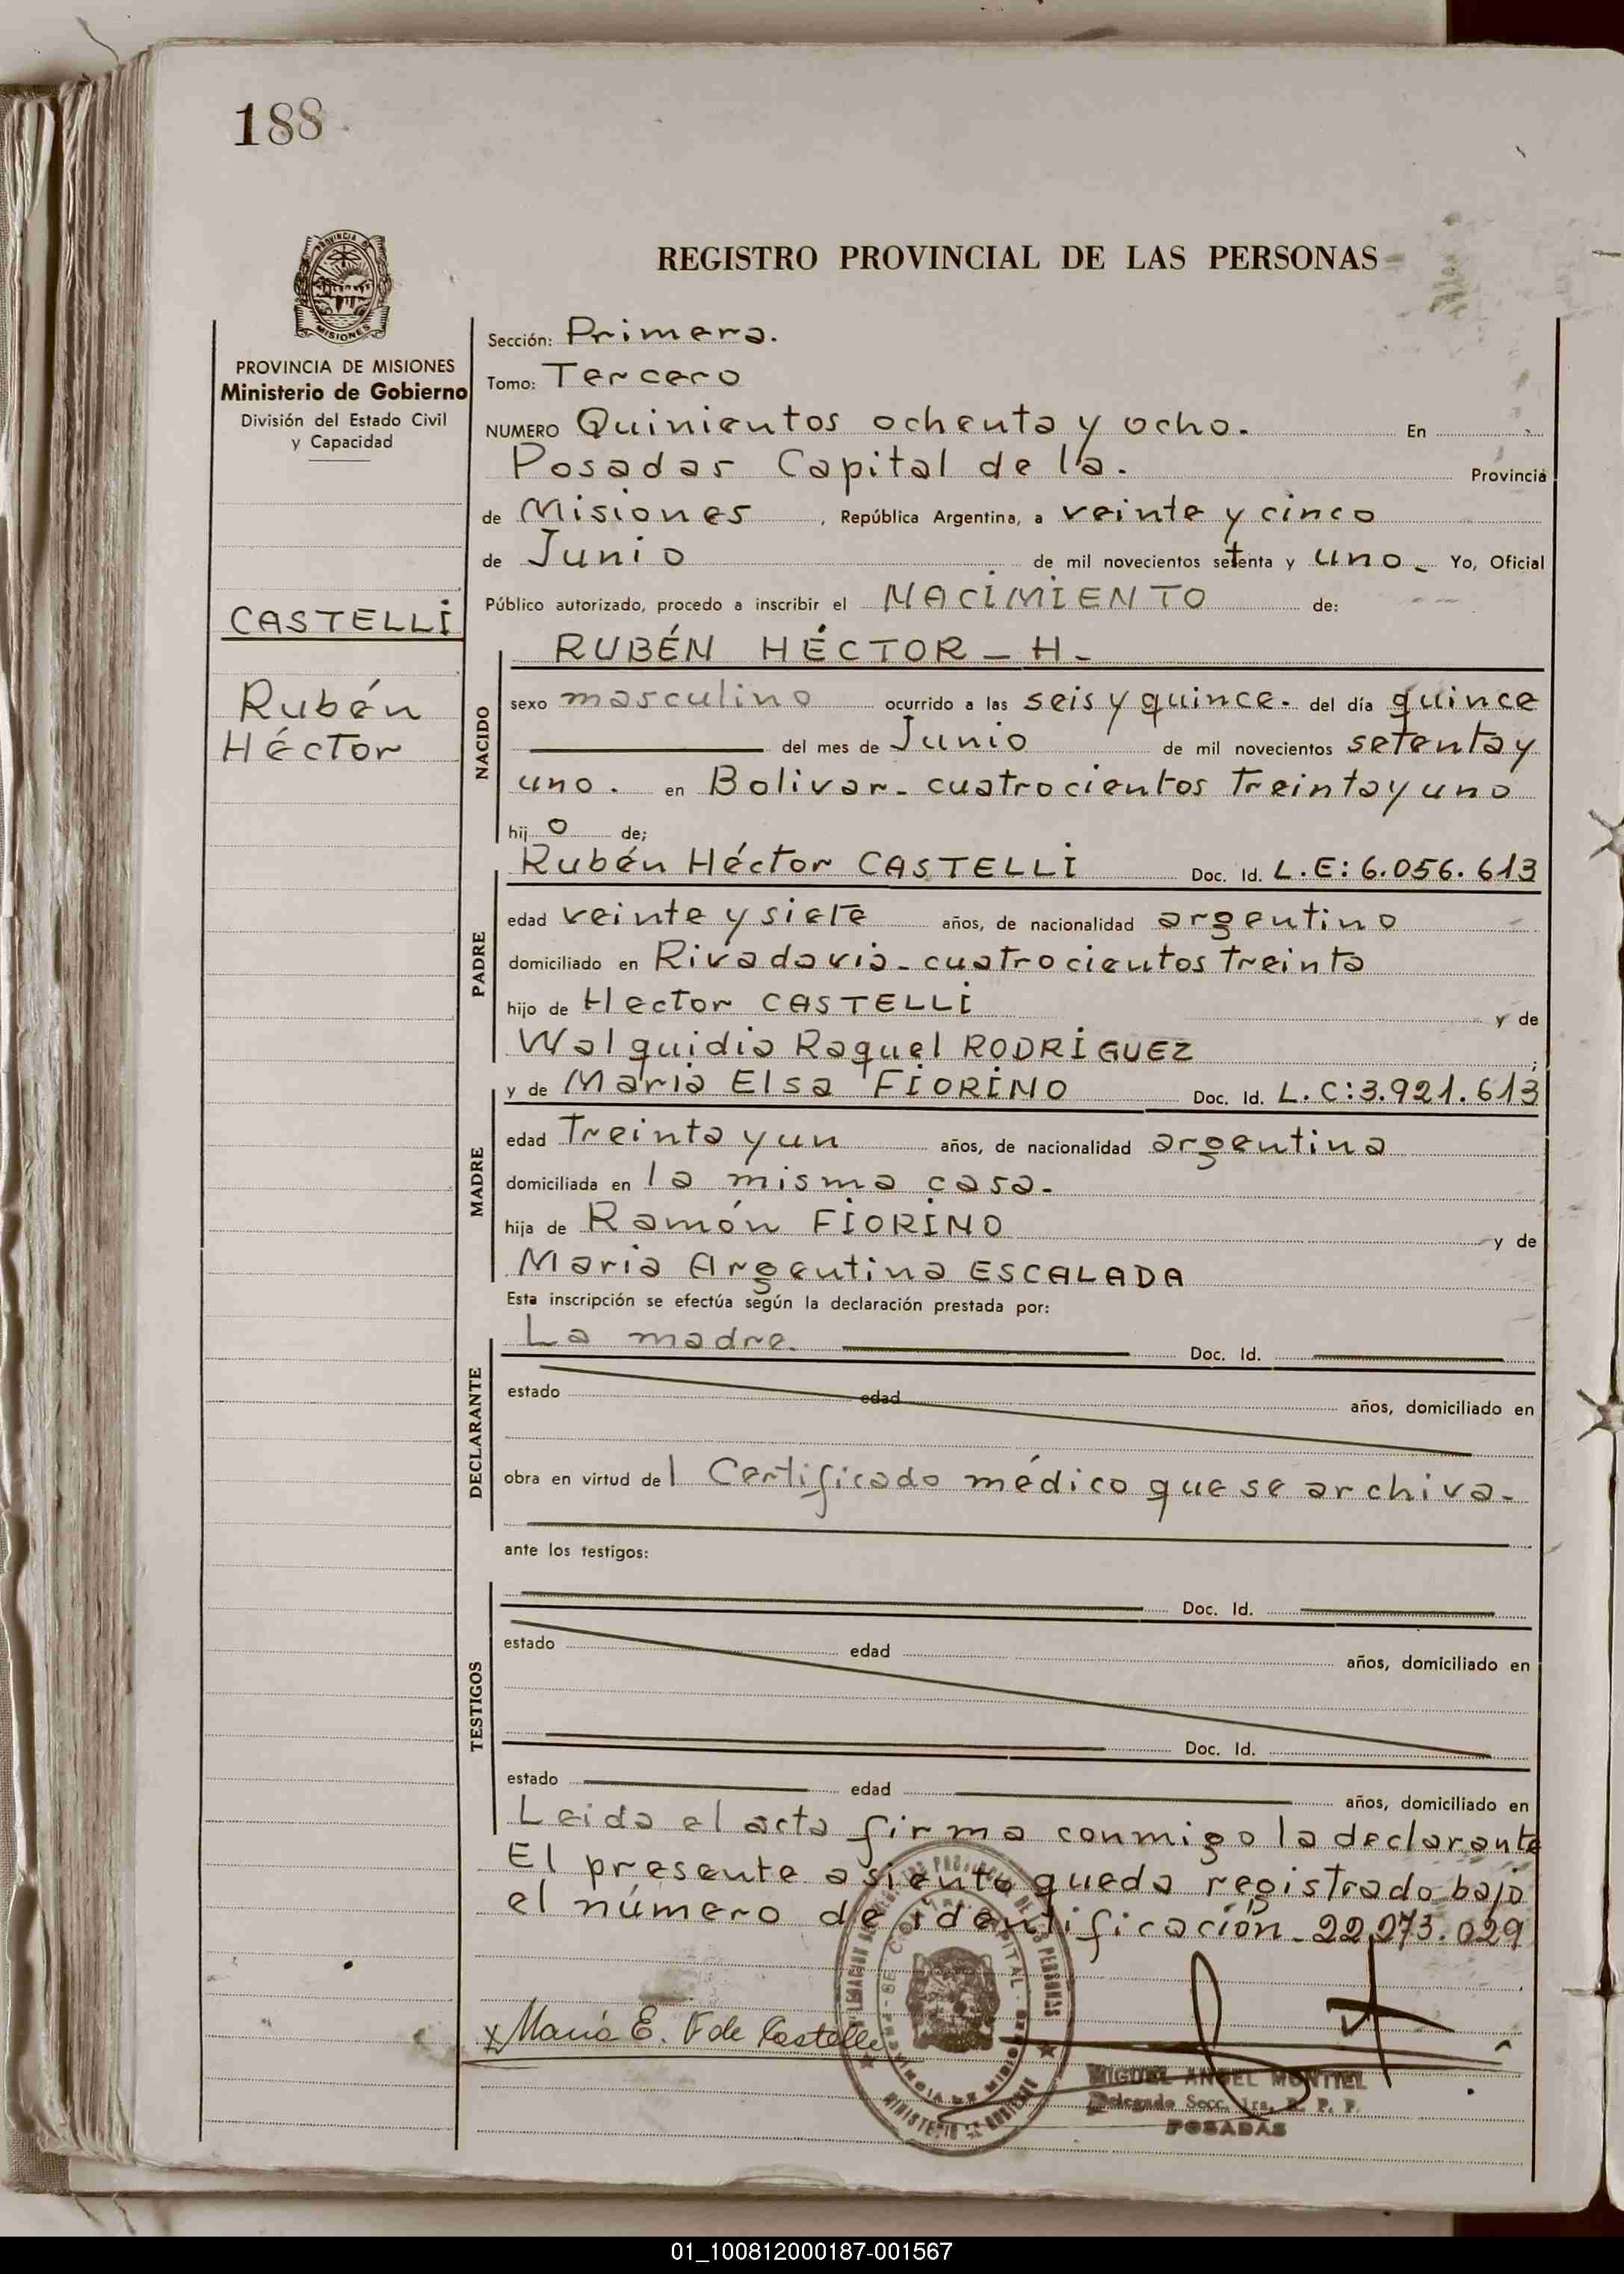 188
REGISTRO PROVINCIAL DE LAS PERSONAS
PROVINCIA DE MISIONES
Ministerio de Gobierno
División del Estado Civil
y Capacidad
CASTELLI
Rubén
Héctor
Sección: Primera.
Tomo: Tercero
NUMERO Quinientos ochenta y ocho. En
Posadas Capital de la. Provincia
de Misiones, República Argentina, a veinte y cinco
de Junio de mil novecientos setenta y uno. Yo, Oficial
Público autorizado, procedo a inscribir el NACIMIENTO de:
RUBÉN HÉCTOR - H -
NACIDO
sexo masculino ocurrido a las seis y quince. del día quince
del mes de Junio de mil novecientos setenta y
uno. en Bolivar - cuatrocientos treinta y uno
hijo de;
Rubén Héctor CASTELLI Doc. Id. L.E: 6.056.613
PADRE
edad veinte y siete años, de nacionalidad argentino
domiciliado en Rivadavia - cuatrocientos treinta
hijo de Hector CASTELLI y de
Walquidia Raquel RODRÍGUEZ ;
y de Maria Elsa FIORINO Doc. Id. L.C: 3.921.613
MADRE
edad Treinta y un años, de nacionalidad argentina
domiciliada en la misma casa.
hija de Ramón FIORINO y de
Maria Argentina ESCALADA
Esta inscripción se efectúa según la declaración prestada por:
La madre. Doc. Id.
DECLARANTE
estado edad años, domiciliado en
obra en virtud del Certificado médico que se archiva.
ante los testigos:
TESTIGOS
Doc. Id.
estado edad años, domiciliado en
Doc. Id.
estado edad años, domiciliado en
Leida el acta firma conmigo la declarante
El presente asiento queda registrado bajo
el número de identificación - 22.273.029
x María E. F de Castelli
MIGUEL ANGEL MONTIEL
Delegado Secc. 1ra. R. P. P.
POSADAS
01_100812000187-001567